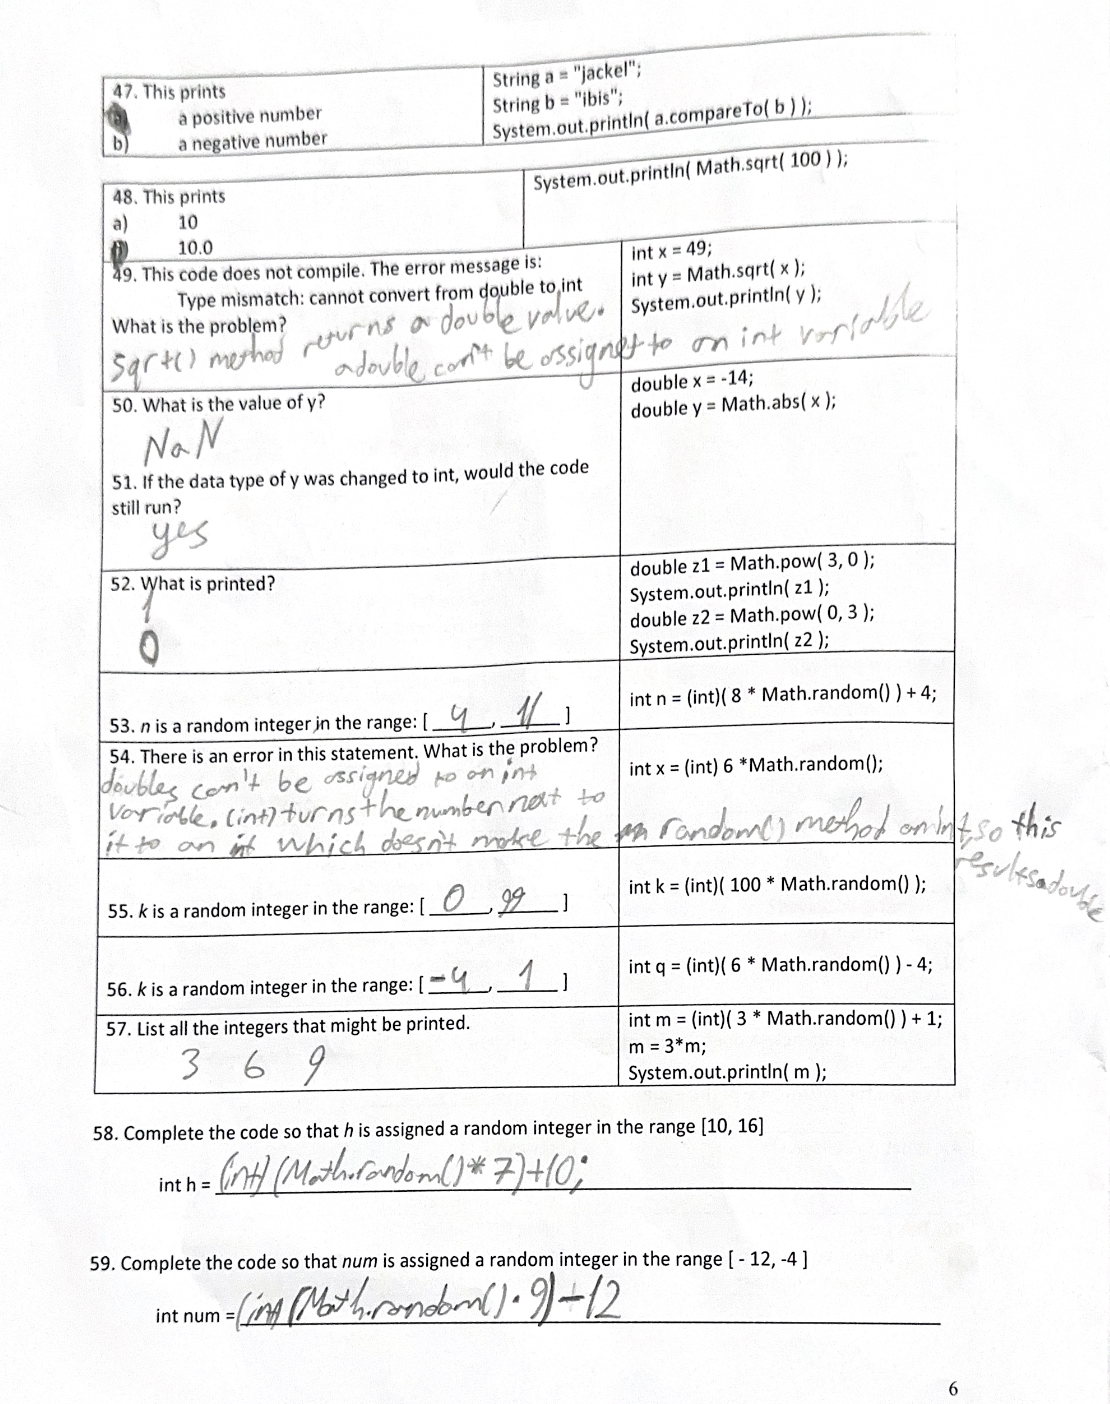 47. This prints
a) a positive number
b) a negative number
String a = "jackel";
String b = "ibis";
System.out.println( a.compareTo( b ) );
48. This prints
a) 10
10.0
System.out.println( Math.sqrt( 100 ) );
49. This code does not compile. The error message is:
Type mismatch: cannot convert from double to int
What is the problem?
sqrt() method returns a double value.
a double can't be assignet to an int variable
int x = 49;
int y = Math.sqrt( x );
System.out.println( y );
50. What is the value of y?
NaN
51. If the data type of y was changed to int, would the code
still run?
yes
double x = -14;
double y = Math.abs( x );
52. What is printed?
1
0
double z1 = Math.pow( 3, 0 );
System.out.println( z1 );
double z2 = Math.pow( 0, 3 );
System.out.println( z2 );
53. n is a random integer in the range: [ 4 , 11 ]
int n = (int)( 8 * Math.random() ) + 4;
54. There is an error in this statement. What is the problem?
doubles can't be assigned to an int
variable. (int) turns the number next to
it to an int which doesn't make the random() method an int, so this
results a double
int x = (int) 6 *Math.random();
55. k is a random integer in the range: [ 0 , 99 ]
int k = (int)( 100 * Math.random() );
56. k is a random integer in the range: [ -4 , 1 ]
int q = (int)( 6 * Math.random() ) - 4;
57. List all the integers that might be printed.
3 6 9
int m = (int)( 3 * Math.random() ) + 1;
m = 3*m;
System.out.println( m );
58. Complete the code so that h is assigned a random integer in the range [10, 16]
int h = (int) (Math.random() * 7) + 10;
59. Complete the code so that num is assigned a random integer in the range [ - 12, -4 ]
int num = (int) (Math.random() · 9) - 12
6